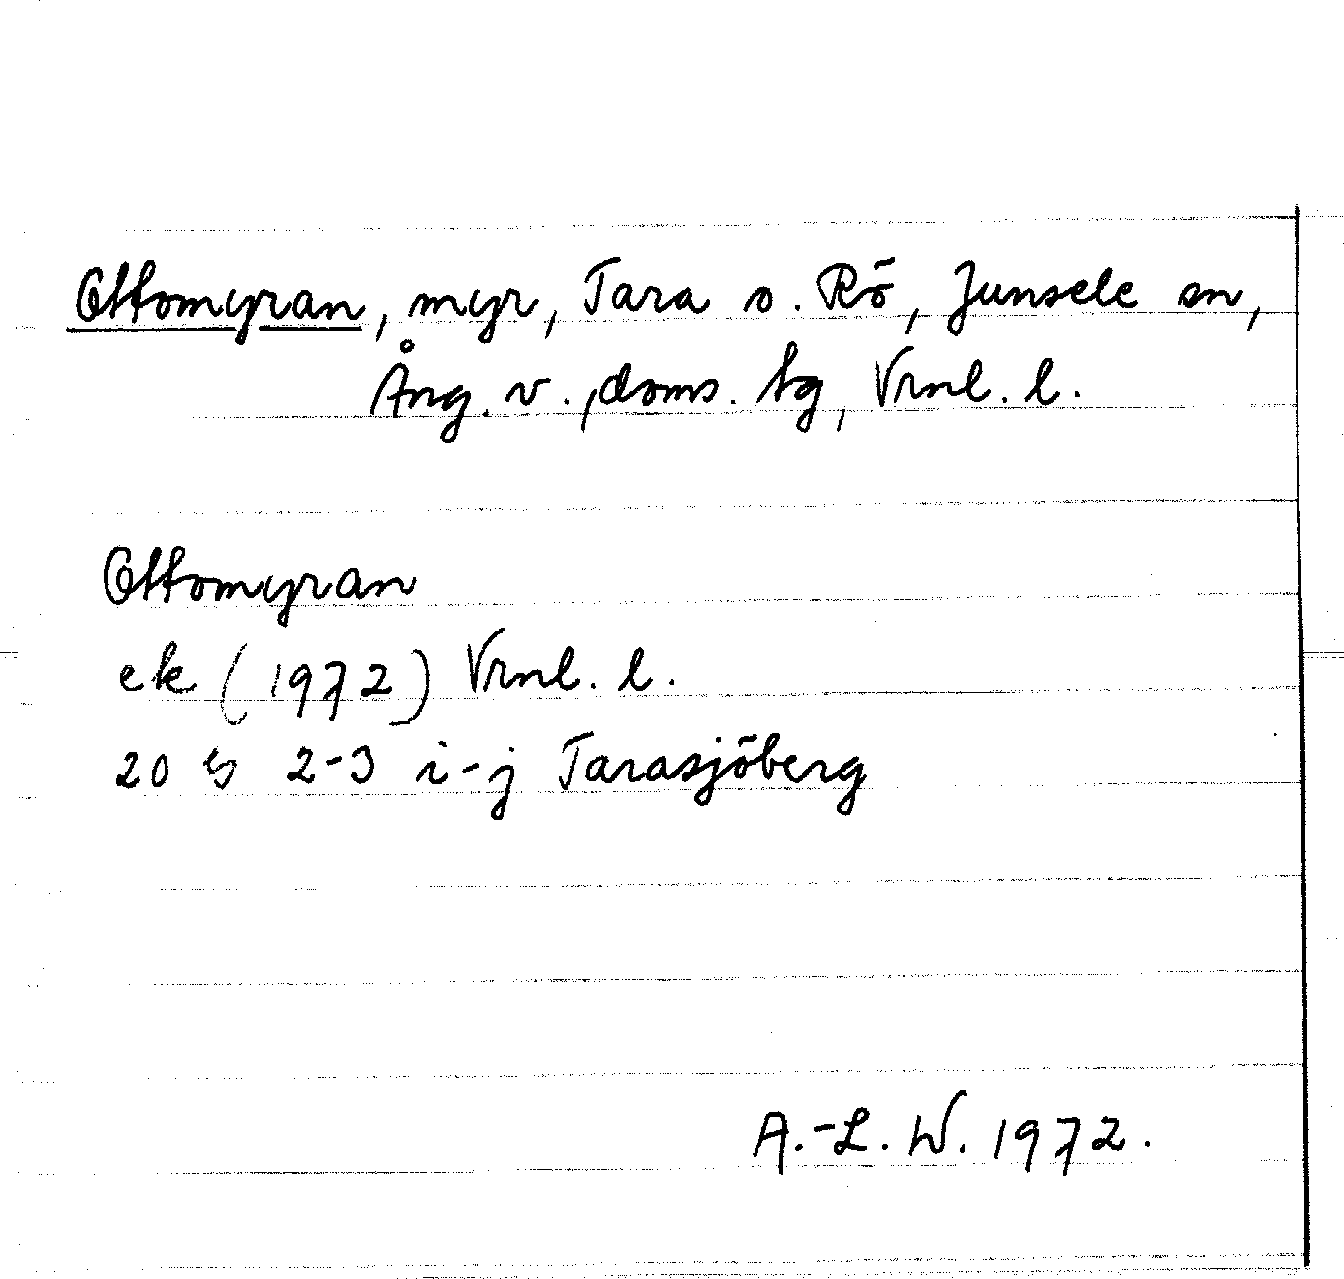 Ottomyran, myr, Tara o. Rö, Junsele sn,
Ång. v., doms. tg, Vrnl. l.
Ottomyran
ek (1972) Vrnl. l.
20 G 2-3 i-j Tarasjöberg
A.-L. W. 1972.